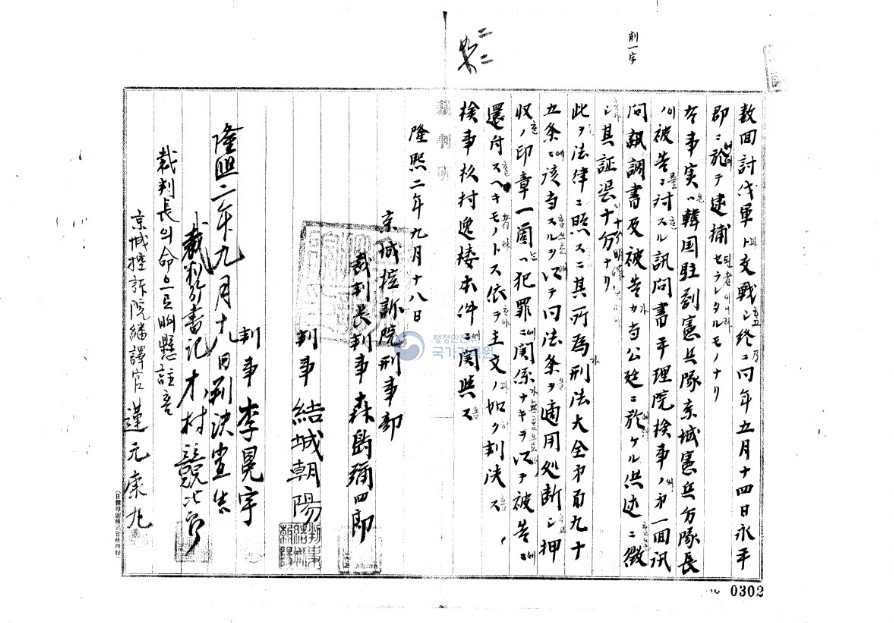 数回討伐軍ト交戦シ終ニ同年五月十四日永平
郡ニ於テ逮捕セラレタルモノナリ
右事実ハ韓国駐剳憲兵隊京城憲兵分隊長
ノ被告ニ対スル訊問書平理院検事ノ第一回訊
問調書及被告カ当公廷ニ於ケル供述ニ徴
シ其証憑十分ナリ
此ヲ法律ニ照スニ其所為刑法大全第百九十
五条ニ該当スルヲ以テ同法条ヲ適用処断シ押
収ノ印章一箇ハ犯罪ニ関係ナキヲ以テ被告ニ
還付スヘキモノトス依テ主文ノ如ク判決ス
検事杉村逸楼本件ニ関与ス
隆熙二年九月十八日
京城控訴院刑事部
裁判長判事 森島彌四郎
判事 結城朝陽
判事 李晃宇
隆熙二年九月十九日判決宣告
裁判所書記 木村
裁判長의命으로此懸註함
京城控訴院繙譯官 元
削一字
行정안전부
국가기록원
0302